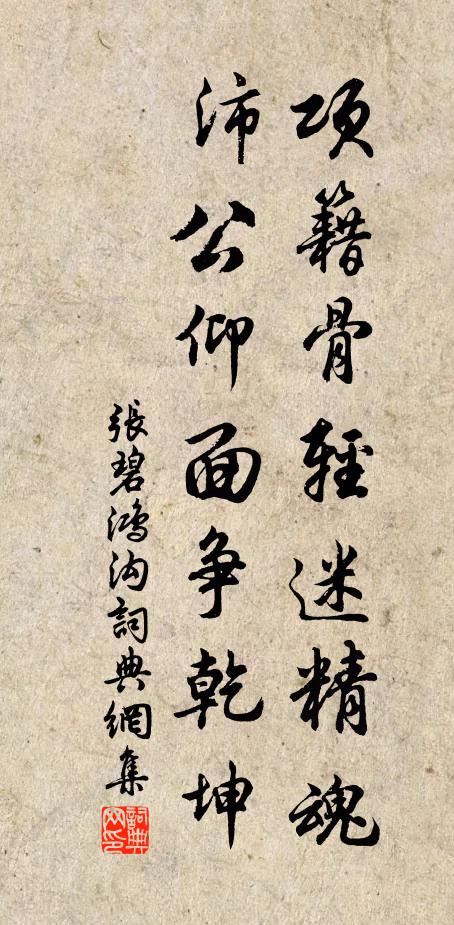 項籍骨輕迷精魂
沛公仰面争乾坤
張碧鴻沟詞典網集
詞典网印